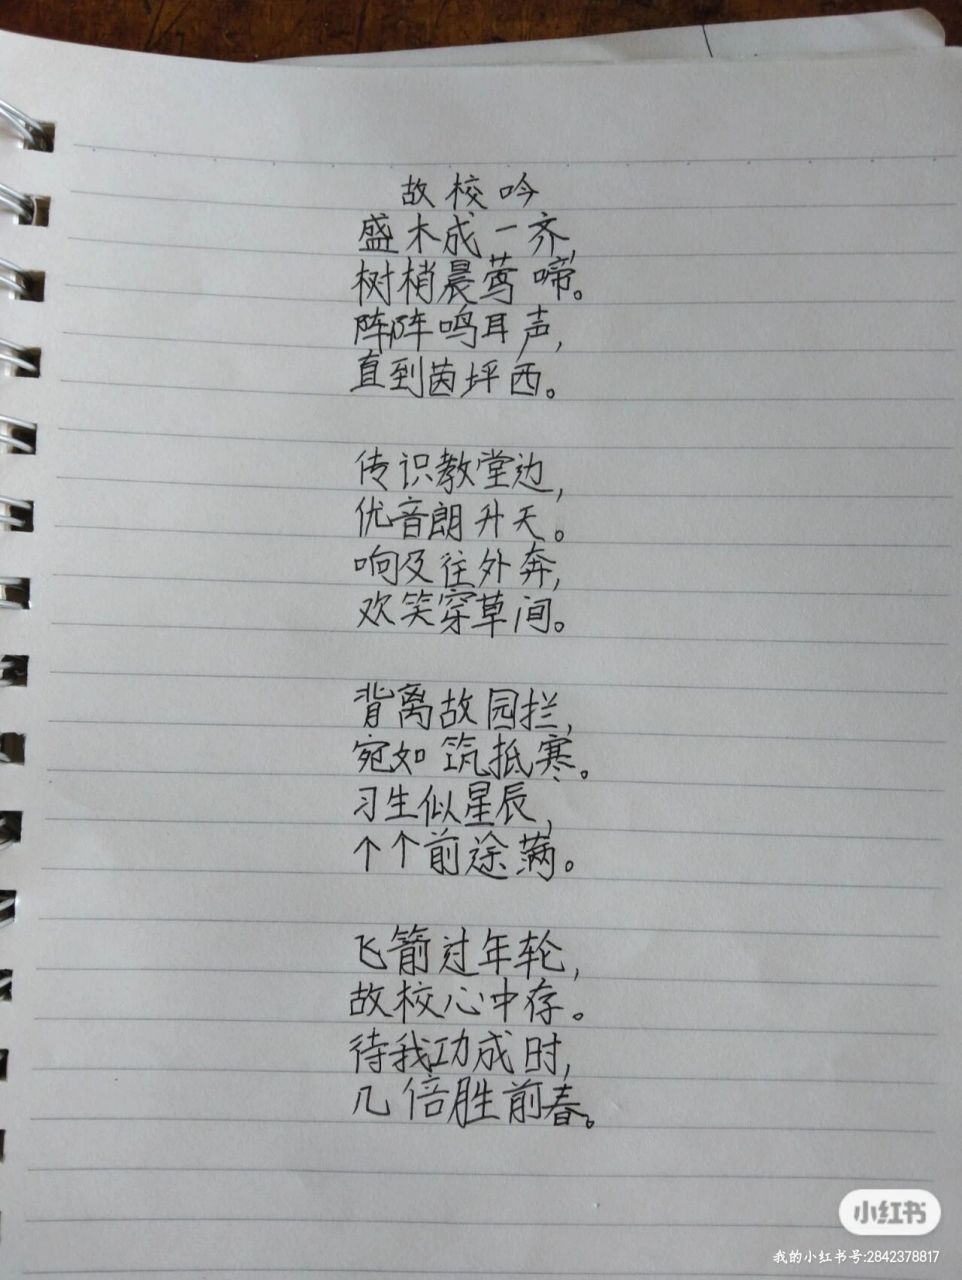 故校吟
盛木成一齐，
树梢晨莺啼。
阵阵鸣耳声，
直到茵坪西。
传识教堂边，
优音朗升天。
响及往外奔，
欢笑穿草间。
背离故园拦，
宛如筑抵寒。
习生似星辰，
个个前途满。
飞箭过年轮，
故校心中存。
待我功成时，
几倍胜前春。
小红书
我的小红书号:2842378817